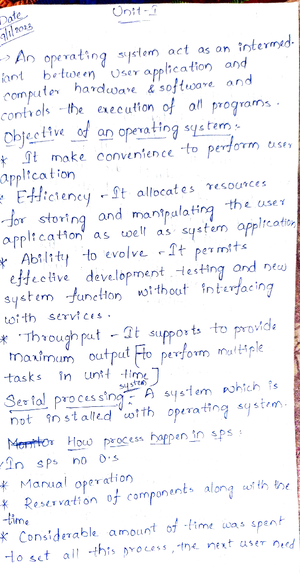 Unit-I
Date
/1/2023
→ An operating system act as an intermed-
iant between user application and
computer hardware & software and
controls the execution of all programs.
Objective of an operating system:-
* It make convenience to perform user
application
* Efficiency - It allocates resources
for storing and manipulating the user
application as well as system application
* Ability to evolve - It permits
effective development testing and new
system function without interfacing
with services.
* Throughput - It supports to provide
maximum output [to perform multiple
tasks in unit time]
Serial processing system:- A system which is
not installed with operating system.
Monitor How process happen in sps:
In sps no O.S
* Manual operation
* Reservation of components along with the
time
* Considerable amount of time was spent
to set all this process, the next user need